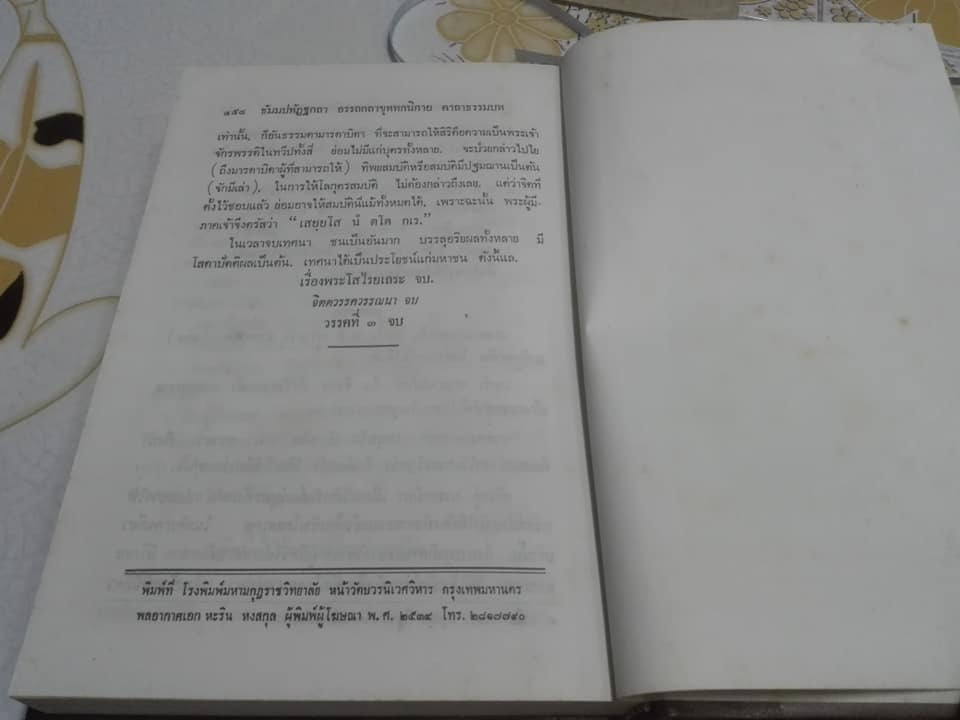 ๑๕๘ ธัมมปทัฏฐกถา อรรถกถาขุททกนิกาย คาถาธรรมบท
เท่านั้น, ก็อันธรรมดามารดาบิดา ที่จะสามารถให้สิริคือความเป็นพระเจ้า
จักรพรรดิในทวีปทั้งสี่ ย่อมไม่มีแก่บุตรทั้งหลาย, จะป่วยกล่าวไปใย
(ถึงมารดาบิดาผู้ที่สามารถให้) ทิพยสมบัติหรือสมบัติมีปฐมฌานเป็นต้น
(จักมีเล่า), ในการให้โลกุตรสมบัติ ไม่ต้องกล่าวถึงเลย, แต่ว่าจิตที่
ตั้งไว้ชอบแล้ว ย่อมอาจให้สมบัตินี้แม้ทั้งหมดได้, เพราะฉะนั้น พระผู้มี-
ภาคเจ้าจึงตรัสว่า “เสยฺยโส นํ ตโต กเร.”
ในเวลาจบเทศนา ชนเป็นอันมาก บรรลุอริยผลทั้งหลาย มี
โสดาปัตติผลเป็นต้น. เทศนาได้เป็นประโยชน์แก่มหาชน ดังนี้แล.
เรื่องพระโสไรยเถระ จบ.
จิตตวรรควรรณนา จบ
วรรคที่ ๓ จบ
พิมพ์ที่ โรงพิมพ์มหามกุฏราชวิทยาลัย หน้าวัดบวรนิเวศวิหาร กรุงเทพมหานคร
พลอากาศเอก หะริน หงสกุล ผู้พิมพ์ผู้โฆษณา พ. ศ. ๒๕๓๔ โทร. ๒๘๑๗๗๙๐